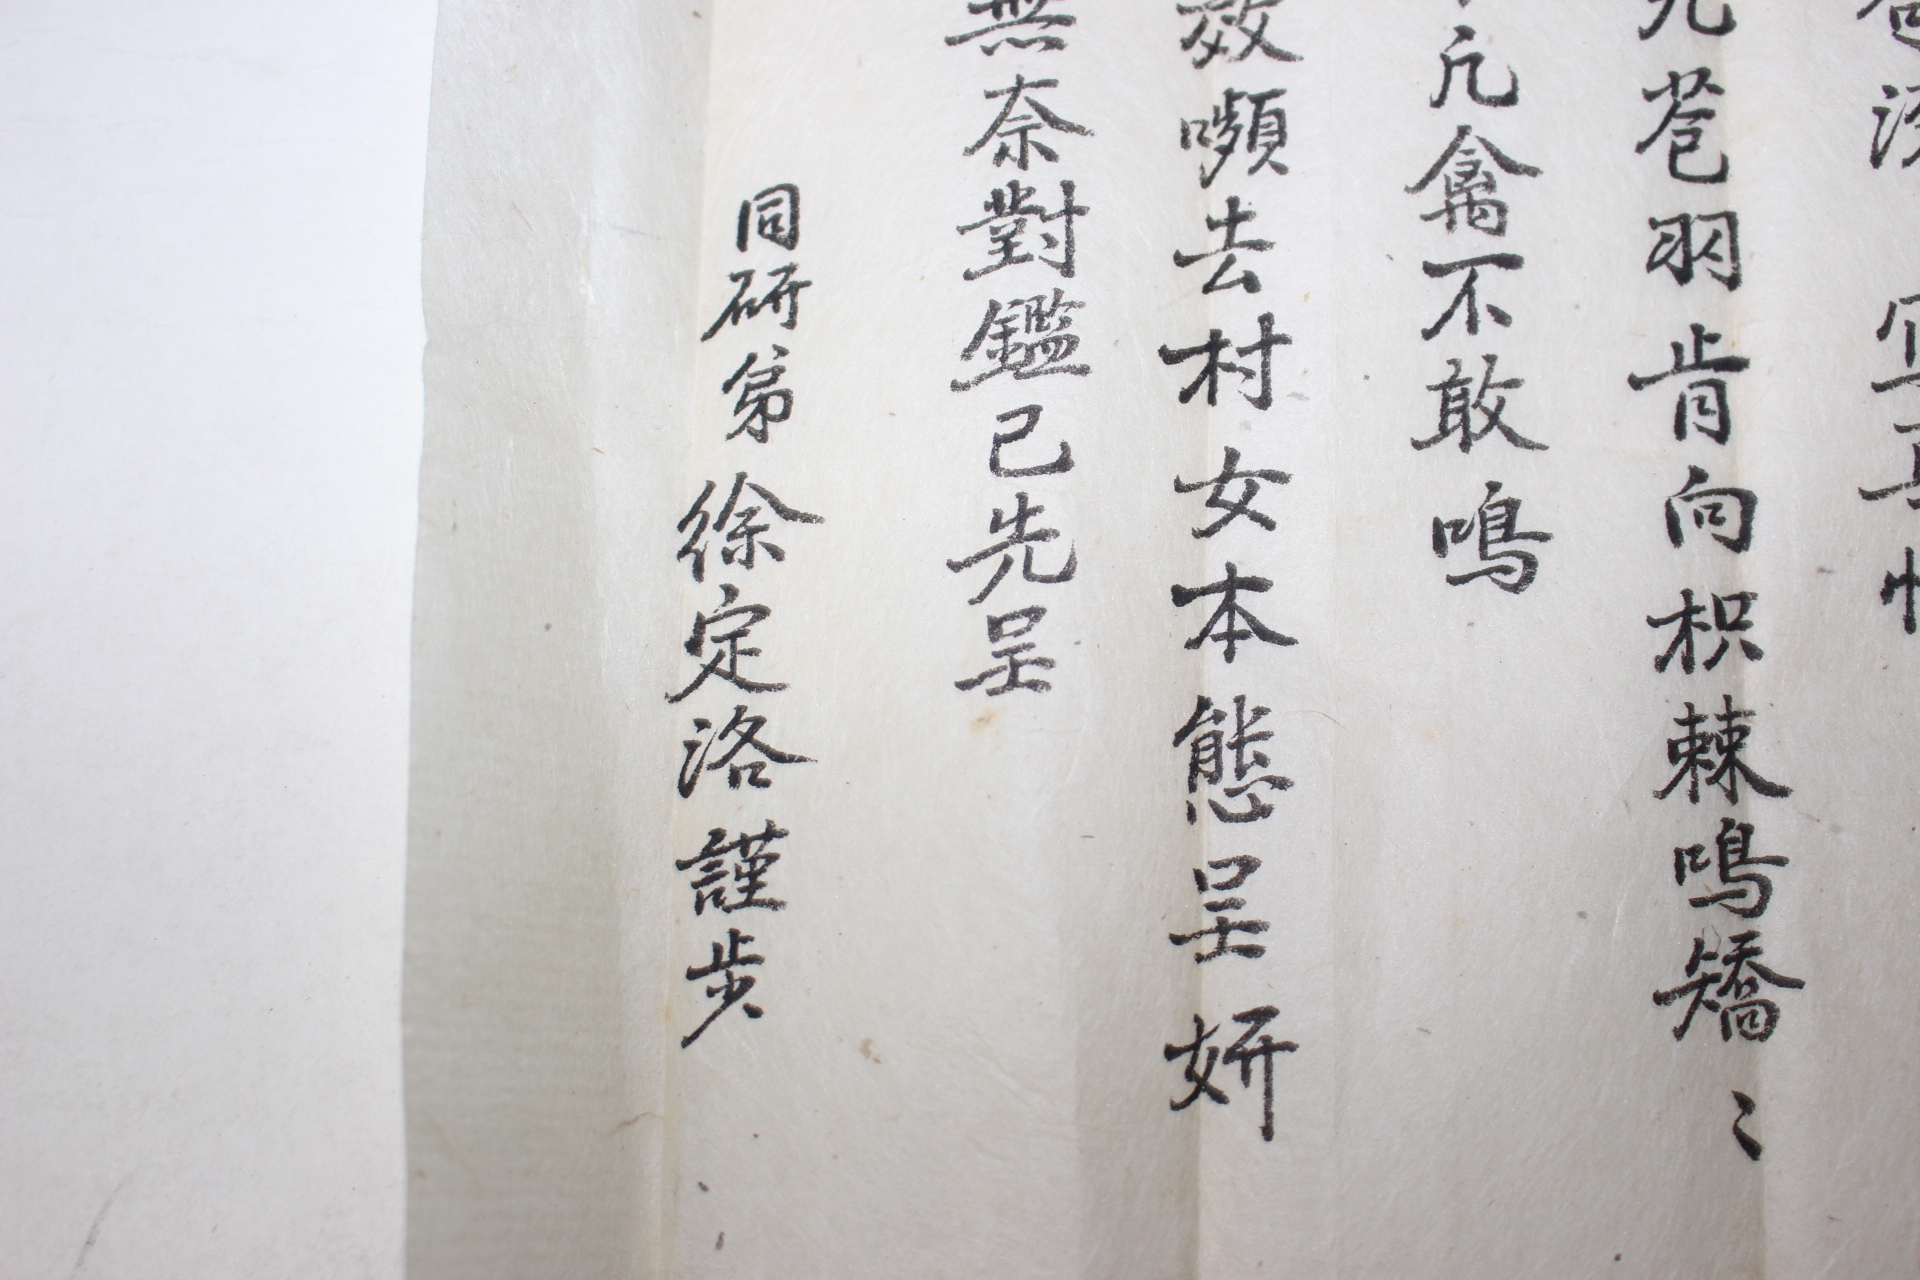 羽肯向枳棘鳴矯〻
凡禽不敢鳴
效嚬去村女本態呈妍
無奈對鑑已先呈
同研弟 徐定洛 謹步